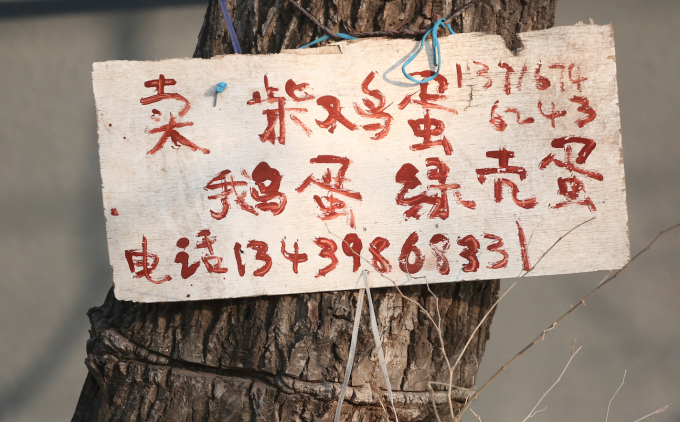 卖 柴鸡蛋 1371674
6243
鹅蛋 绿壳蛋
电话13439868331